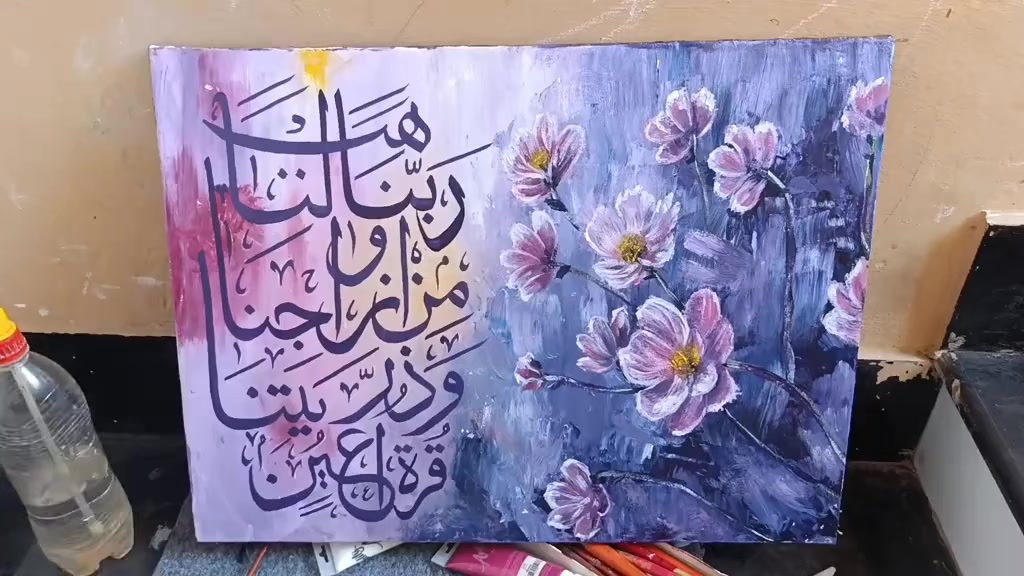 ربّنا هب لنا
من ازواجنا
وذرّيتنا
قرة اعين